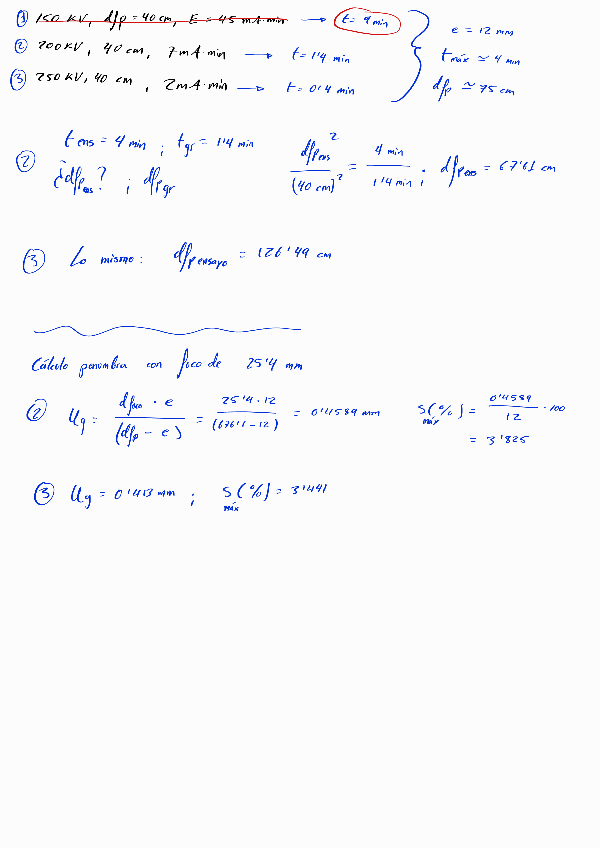 ① 150 KV, dfp = 40 cm, E = 45 mA·min → t = 9 min
② 200 KV, 40 cm, 7 mA·min → t = 1'4 min
③ 250 KV, 40 cm, 2 mA·min → t = 0'4 min
e = 12 mm
t máx ≃ 4 min
dfp ≃ 75 cm
② t ens = 4 min ; t gr = 1'4 min
¿dfp ens? ; dfp gr
dfp ens² / (40 cm)² = 4 min / 1'4 min ; dfp ens = 67'61 cm
③ Lo mismo: dfp ensayo = 126'49 cm
Cálculo penumbra con foco de 25'4 mm
② Ug = d foco · e / (dfp - e) = 25'4 · 12 / (676'1 - 12) = 0'4589 mm
S(%) máx = 0'4589 / 12 · 100
= 3'825
③ Ug = 0'413 mm ; S(%) máx = 3'441